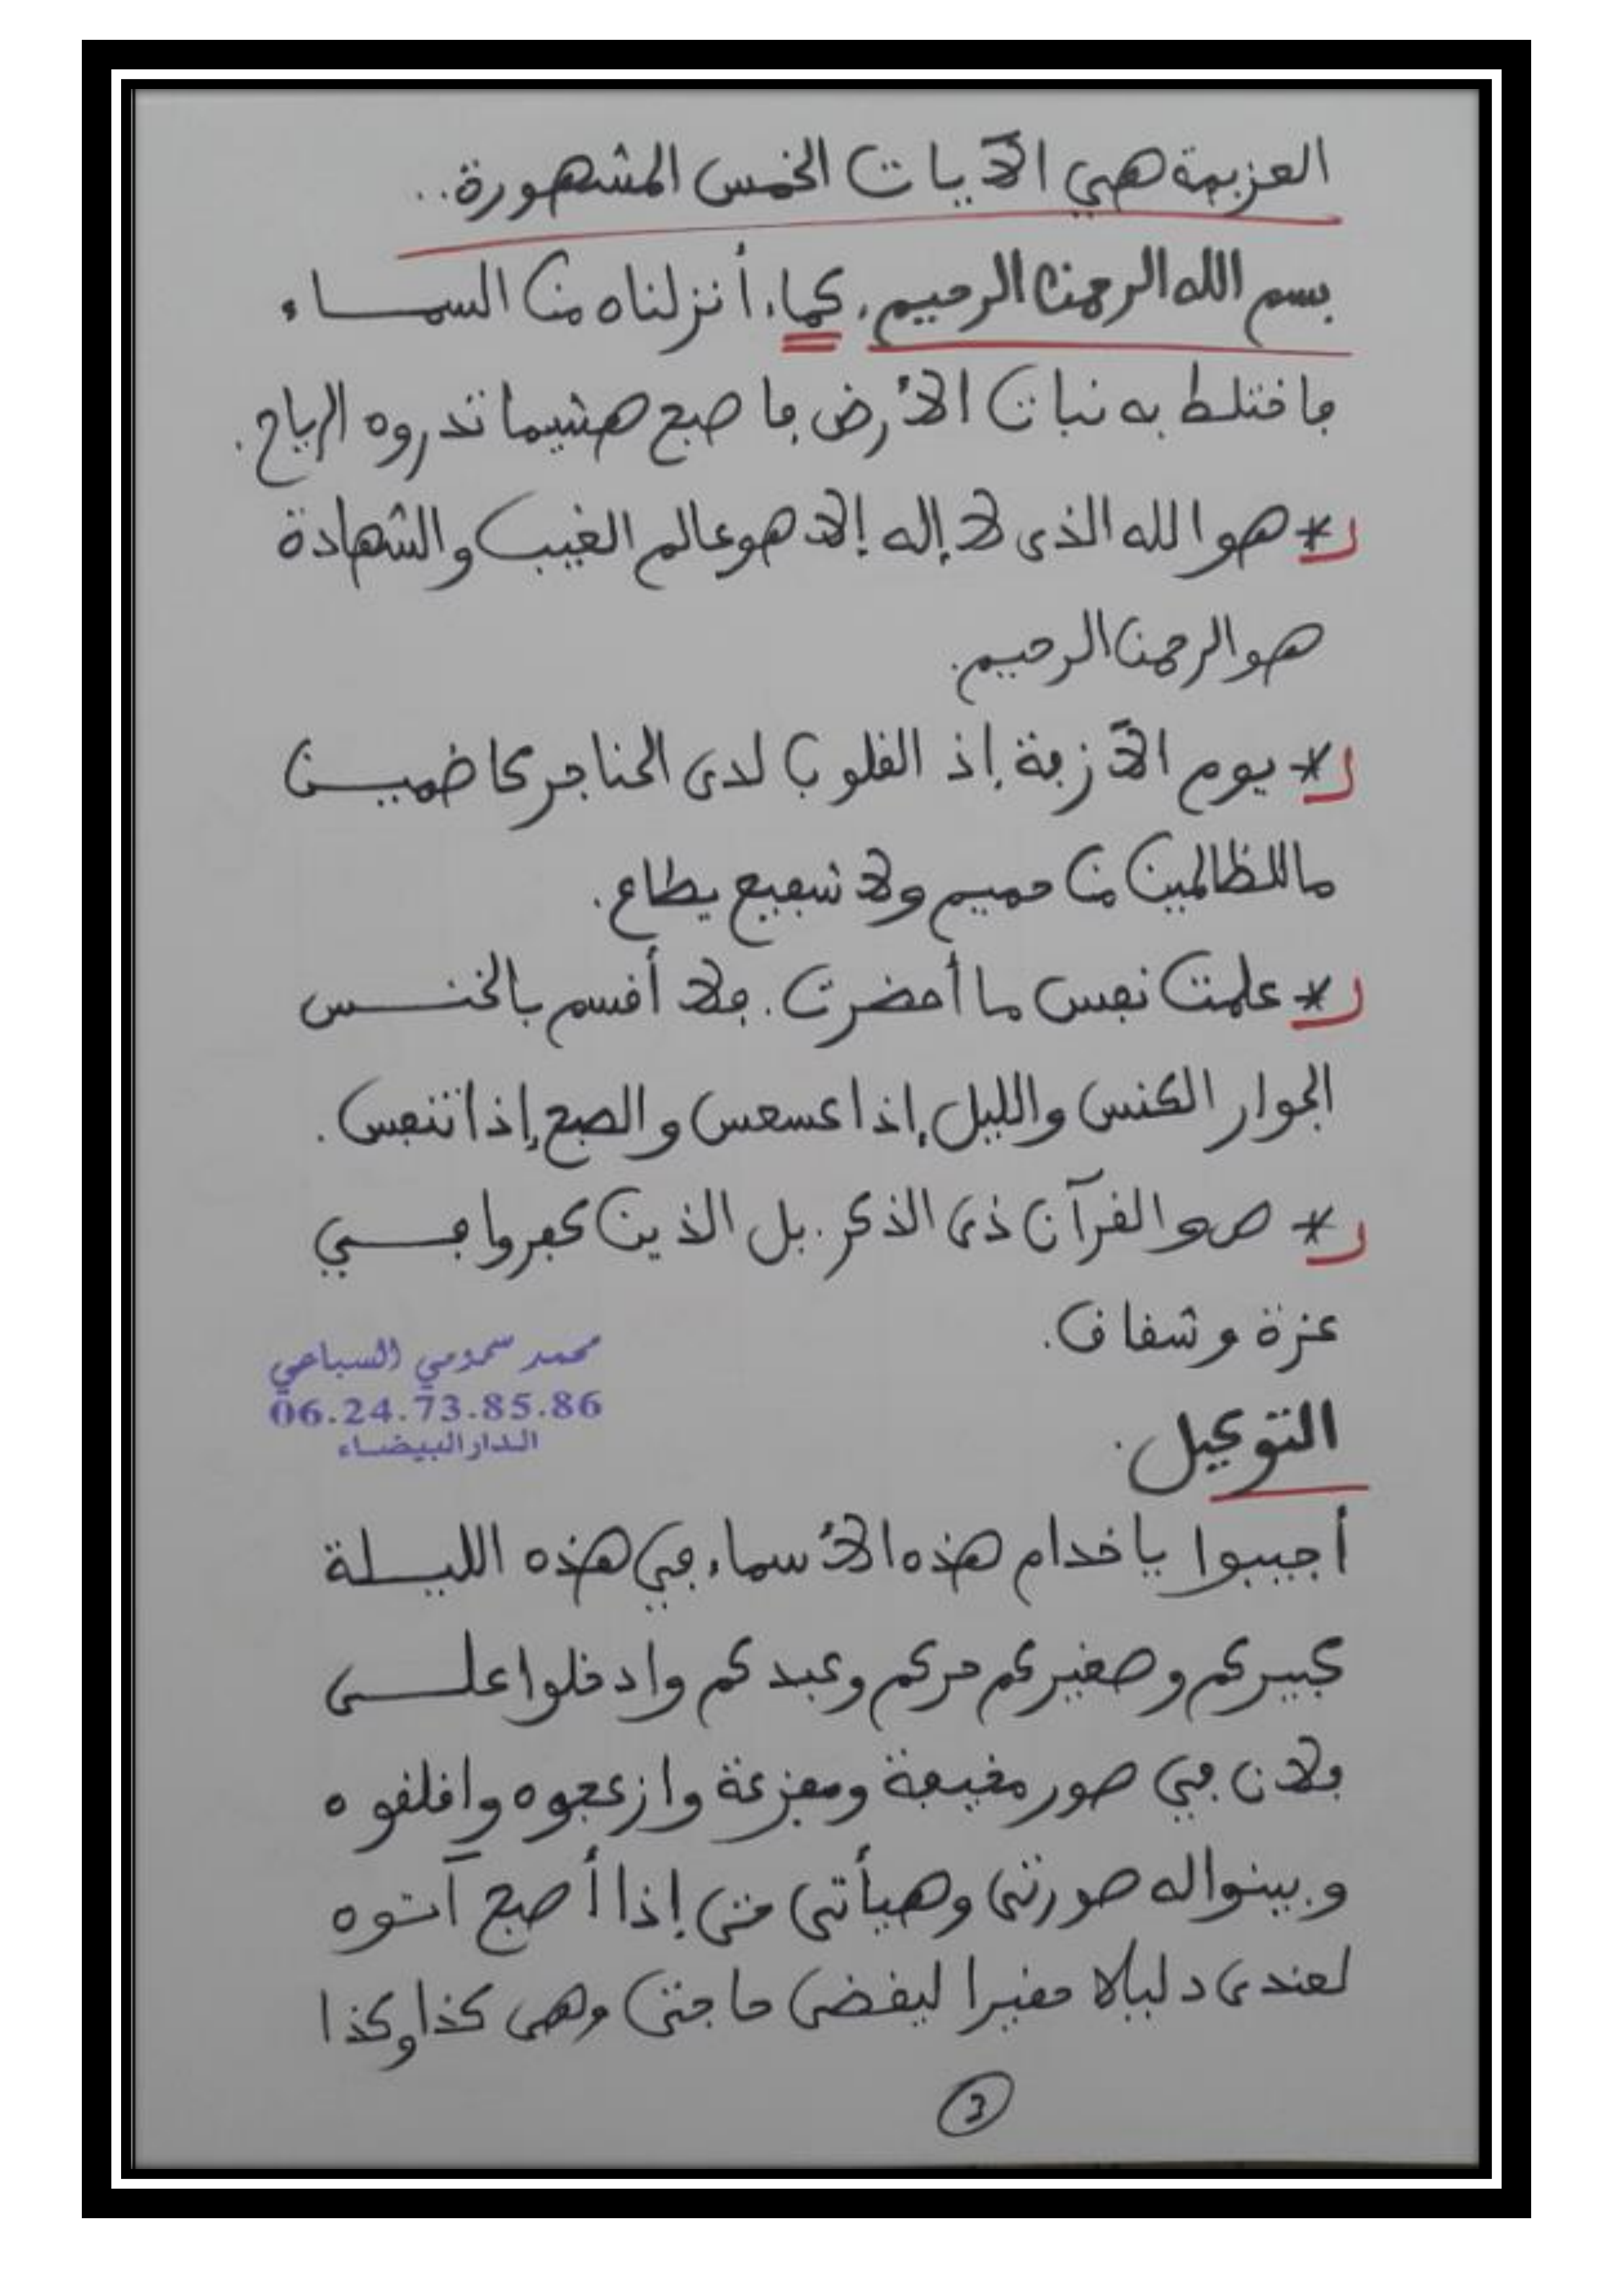 العزيمة هي الآيات الخمس المشهورة..
بسم الله الرحمن الرحيم. كماء أنزلناه من السماء
فاختلط به نبات الأرض فاصبح هشيما تدروه الرياح.
* هو الله الذى لا إله إلا هو عالم الغيب والشهادة
هو الرحمن الرحيم.
* يوم الآزفة إذ القلوب لدى الحناجر كاضمين
ما للظالمين من حميم ولا شفيع يطاع.
* علمت نفس ما أحضرت. فلا أقسم بالخنس
الجوار الكنس والليل إذا عسعس والصبح إذا تنفس.
* ص والقرآن ذى الذكر. بل الذين كفروا في
عزة وشقاق.
محمد سمومي السباعي
06.24.73.85.86
الدار البيضاء
التوكيل.
أجيبوا يا خدام هذه الأسماء في هذه الليلة
كبيركم وصغيركم حركم وعبدكم وادخلوا على
فلان في صور مخيفة ومفزعة وازعجوه واقلقوه
وبينوا له صورتى وهيأتى حتى إذا أصبح آتوه
لعندى دليلا حقيرا ليقضى حاجتى وهى كذا وكذا
3